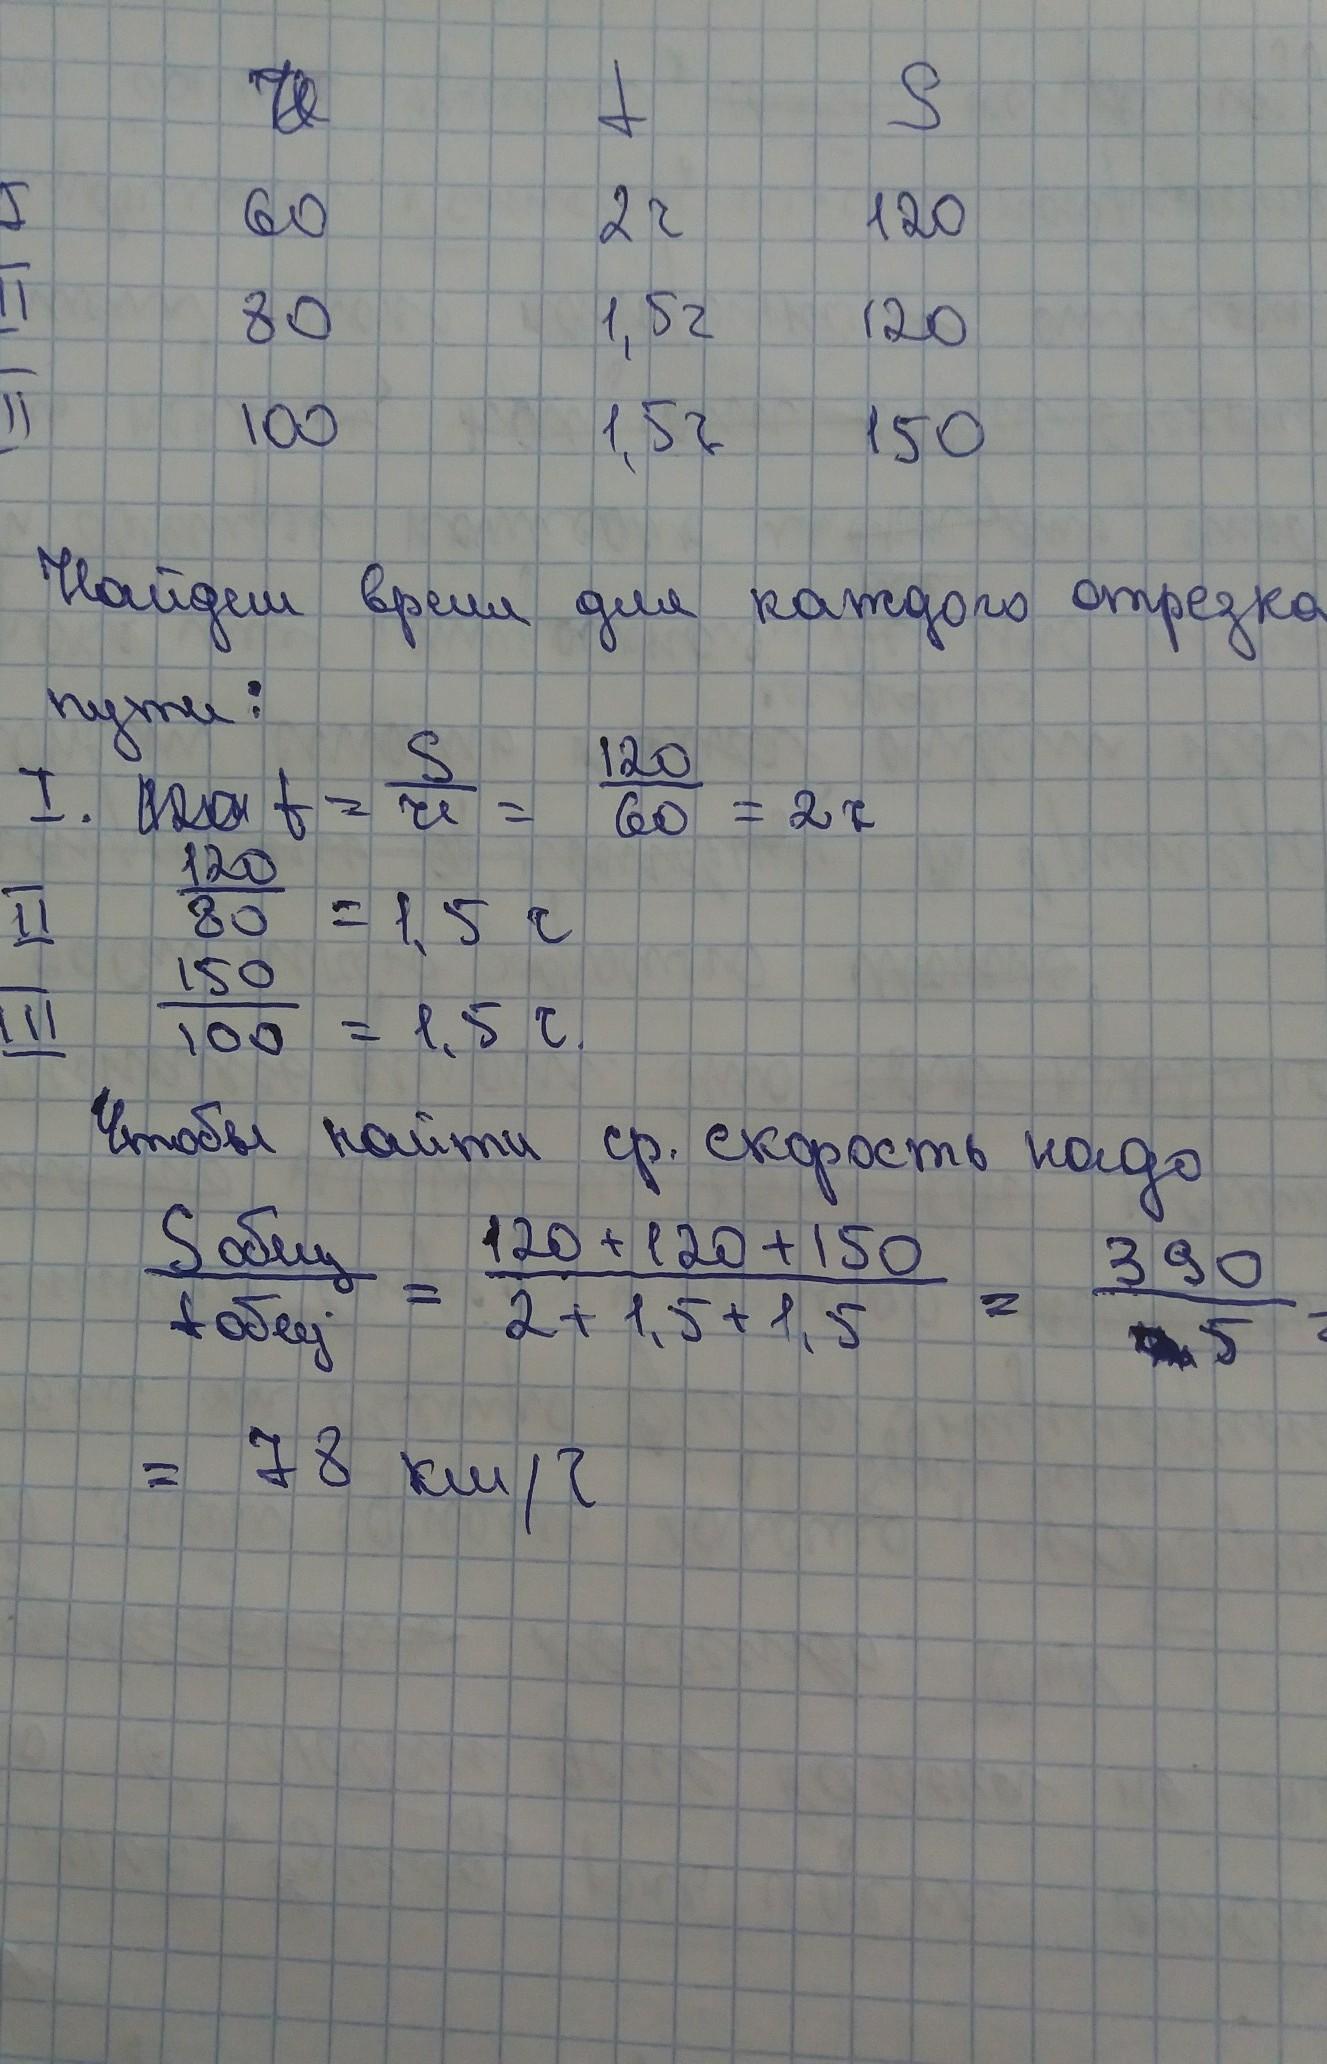 v t S
I 60 2ч 120
II 80 1,5ч 120
II 100 1,5ч 150
Найдем время для каждого отрезка
пути:
I. t = S/v = 120/60 = 2ч
II 120/80 = 1,5 ч
III 150/100 = 1,5 ч.
Чтобы найти ср. скорость надо
Sобщ/tобщ = 120+120+150/2+1,5+1,5 = 390/5 =
= 78 км/ч